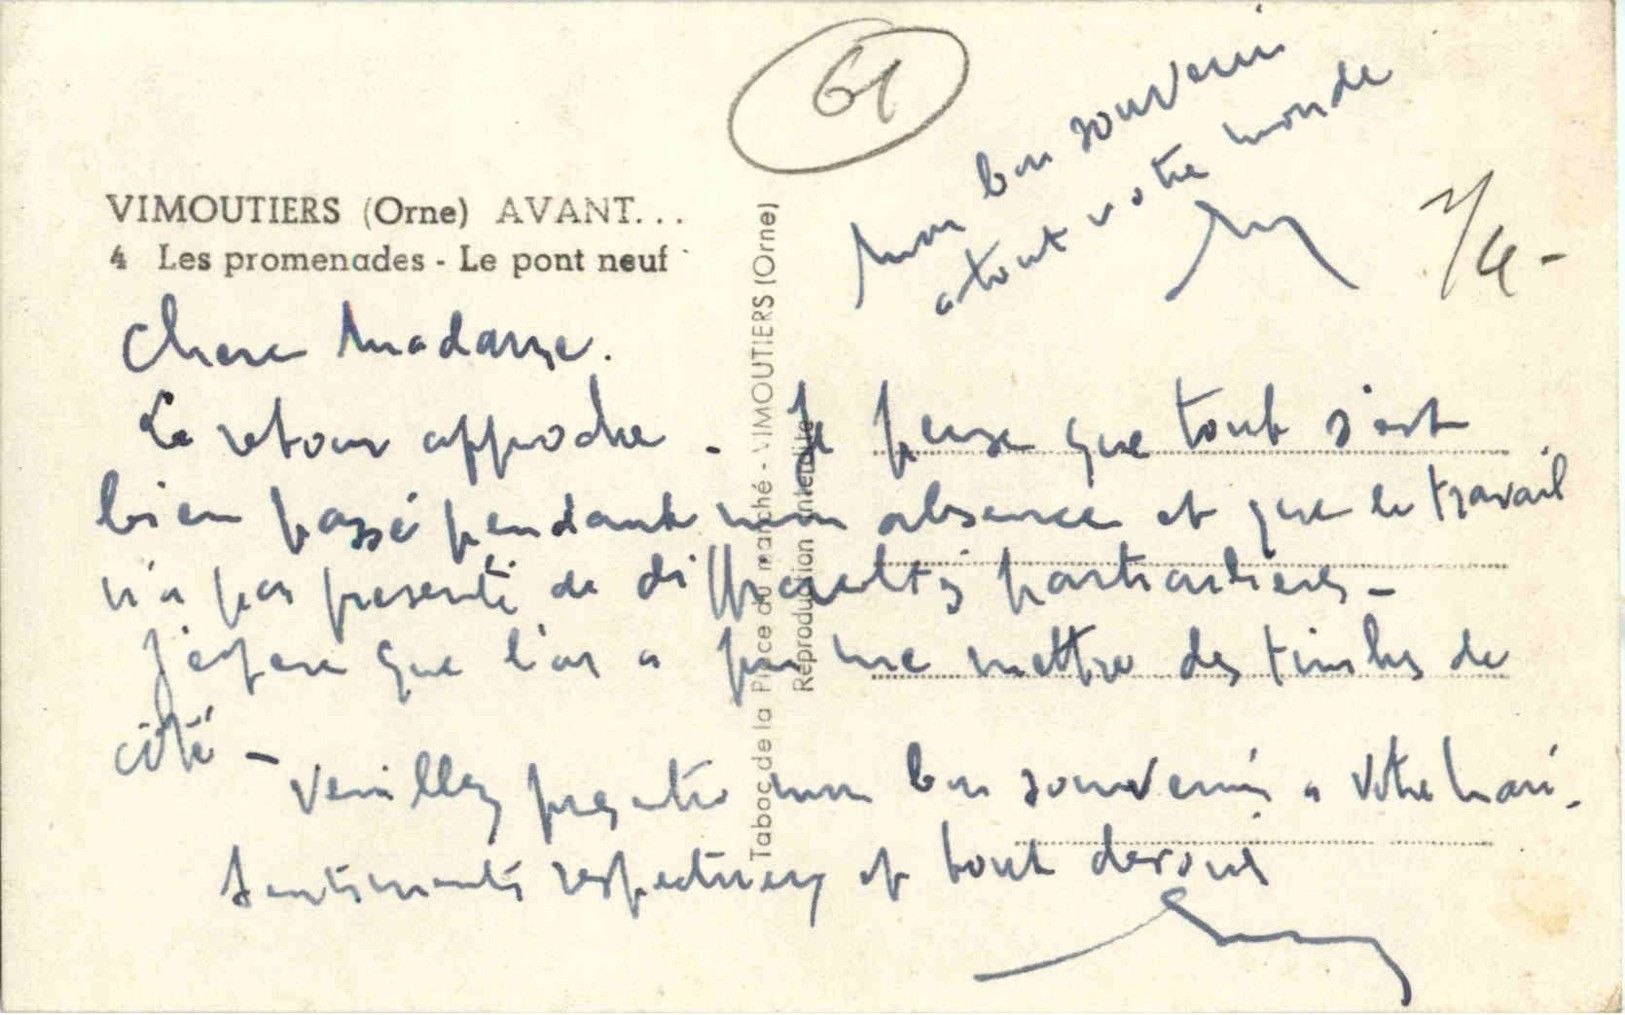 61
Mon bon souvenir
a tout votre monde
VIMOUTIERS (Orne) AVANT...
4 Les promenades - Le pont neuf
Chere Madame.
Le retour approche - Je pense que tout s'est
bien passé pendant mon absence et que le travail
n'a pas presenté de difficultés particulieres -
J'espere que l'on a pu me mettre des timbres de
côté -
Veuillez presenter mon bon souvenir a votre mari.
Sentiments respectueux et tout devoué
Tabac de la Place du marché - VIMOUTIERS (Orne)
Reproduction interdite